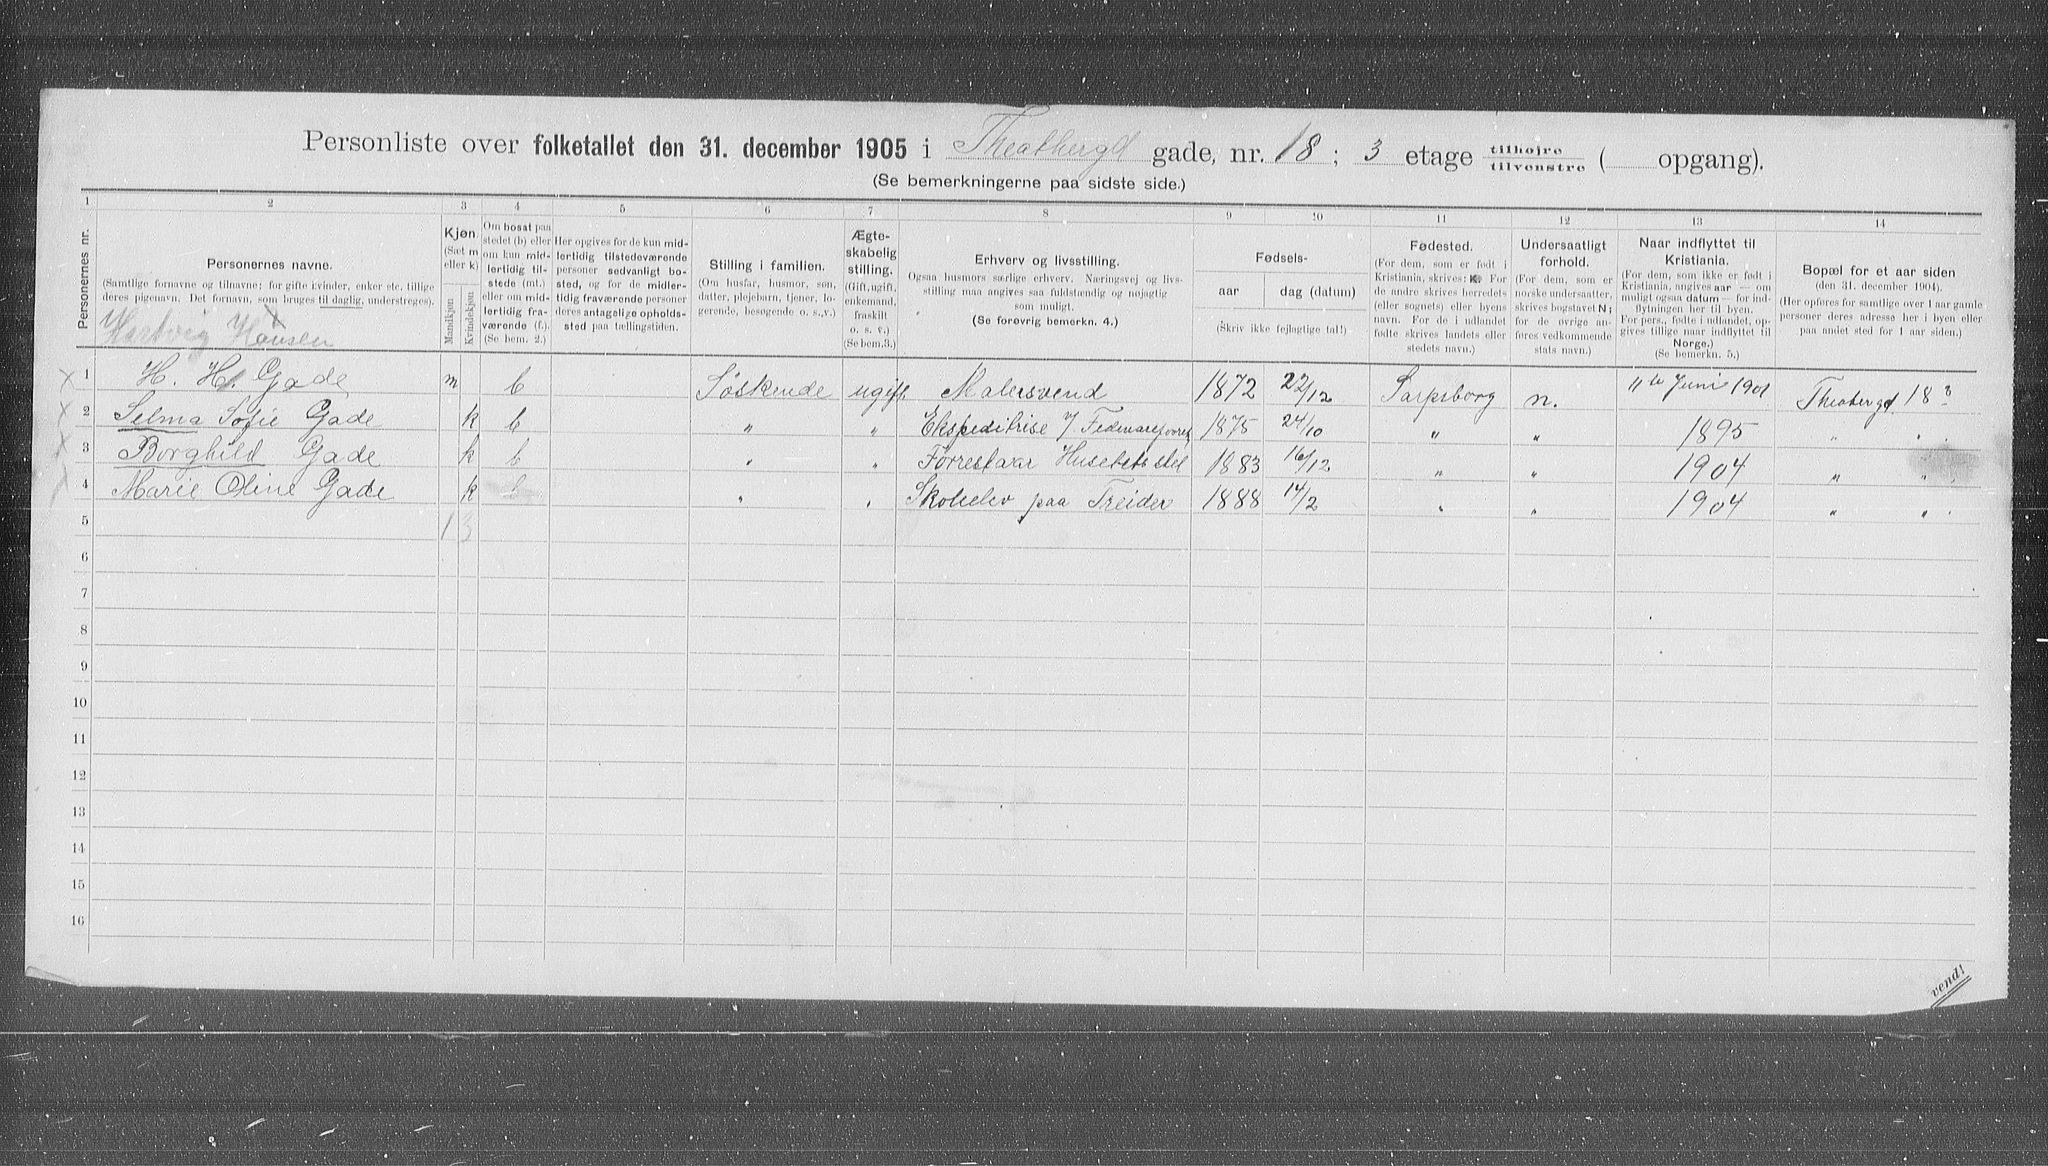 Personliste over folketallet den 31. december 1905 i Theatergd gade, nr. 18; 3 etage tilhøjre tilvenstre ( opgang).
(Se bemerkningerne paa sidste side.)
1 2 3 4 5 6 7 8 9 10 11 12 13 14
Personernes nr.
Personernes navne.
(Samtlige fornavne og tilnavne; for gifte kvinder, enker etc. tillige
deres pigenavn. Det fornavn, som bruges til daglig, understreges).
Kjøn.
(Sæt m
eller k)
Mandkjøn
Kvindekjøn
Om bosat paa
stedet (b) eller
om kun mid-
lertidig til-
stede (mt.)
eller om mid-
lertidig fra-
værende (f.).
(Se bem. 2.)
Her opgives for de kun mid-
lertidig tilstedeværende
personer sedvanligt bo-
sted, og for de midler-
tidig fraværende personer
deres antagelige opholds-
sted paa tællingstiden.
Stilling i familien.
(Om husfar, husmor, søn,
datter, plejebarn, tjener, lo-
gerende, besøgende o. s. v.)
Ægte-
skabelig
stilling.
(Gift, ugift,
enkemand,
fraskilt
o. s. v.)
(Se bem. 3.)
Erhverv og livsstilling.
Ogsaa husmors særlige erhverv. Næringsvej og livs-
stilling maa angives saa fuldstændig og nøjagtig
som muligt.
(Se forøvrig bemerkn. 4.)
Fødsels-
aar
dag (datum)
(Skriv ikke fejlagtige tal!)
Fødested.
(For dem, som er født i
Kristiania, skrives: K. For
de andre skrives herredets
(eller sognets) eller byens
navn. For de i udlandet
fødte skrives landets eller
stedets navn.)
Undersaatligt
forhold.
(For dem, som er
norske undersaatter,
skrives bogstavet N;
for de øvrige an-
føres vedkommende
stats navn.)
Naar indflyttet til
Kristiania.
(For dem, som ikke er født i
Kristiania, angives aar — om
muligt ogsaa datum — for ind-
flytningen her til byen.
For pers., fødte i udlandet, op-
gives tillige naar indflyttet til
Norge.)
(Se bemerkn. 5.)
Bopæl for et aar siden
(den 31. december 1904).
(Her opføres for samtlige over 1 aar gamle
personer deres adresse her i byen eller
paa andet sted for 1 aar siden.)
Hartvig Hansen
1 H. H. Gade m b Søskende ugift Malersvend 1872 22/12 Sarpsborg n. 11te Juni 1901 Theatergd 18 3
2 Selma Sofie Gade k b " " Ekspeditrise 1875 24/10 " " 1895 " "
3 Borghild Gade k b " " Forrestaar Husetsstel 1883 16/12 " " 1904 " "
4 Marie Oline Gade k b " " Skoleelev paa Treider 1888 14/2 " " 1904 " "
5 1 3
6
7
8
9
10
11
12
13
14
15
16
vend!